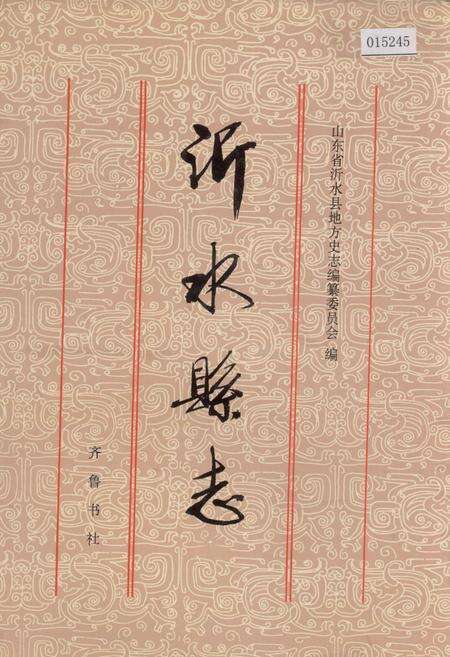 015245
山东省沂水县地方史志编纂委员会 编
沂水縣志
齐鲁书社